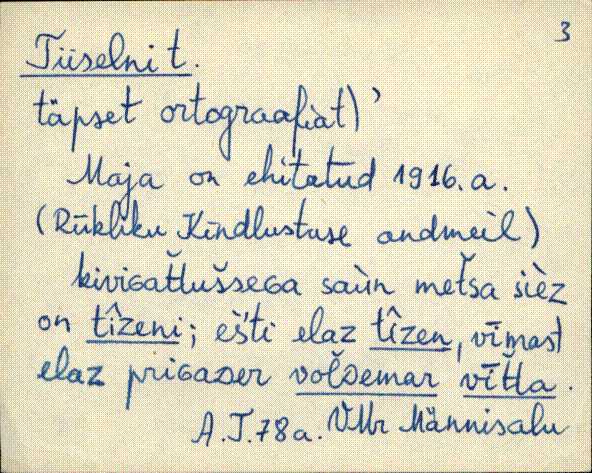 3
Tiiselni t.
täpset ortograafiàt)’
Maja on ehitatud 1916.a.
(Rīkliku Kīndlustuse andmeil)
kiviGat̆lušseGa saùn met̆sa sièz
on tîzeni; ešti elaz tîzen, vīmast
elaz priGaDer vol̆Demar vīt̆la.
A.T.78a. VMr Männisalu